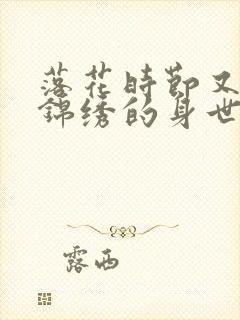 落花時節又
錦绣的身世
露西